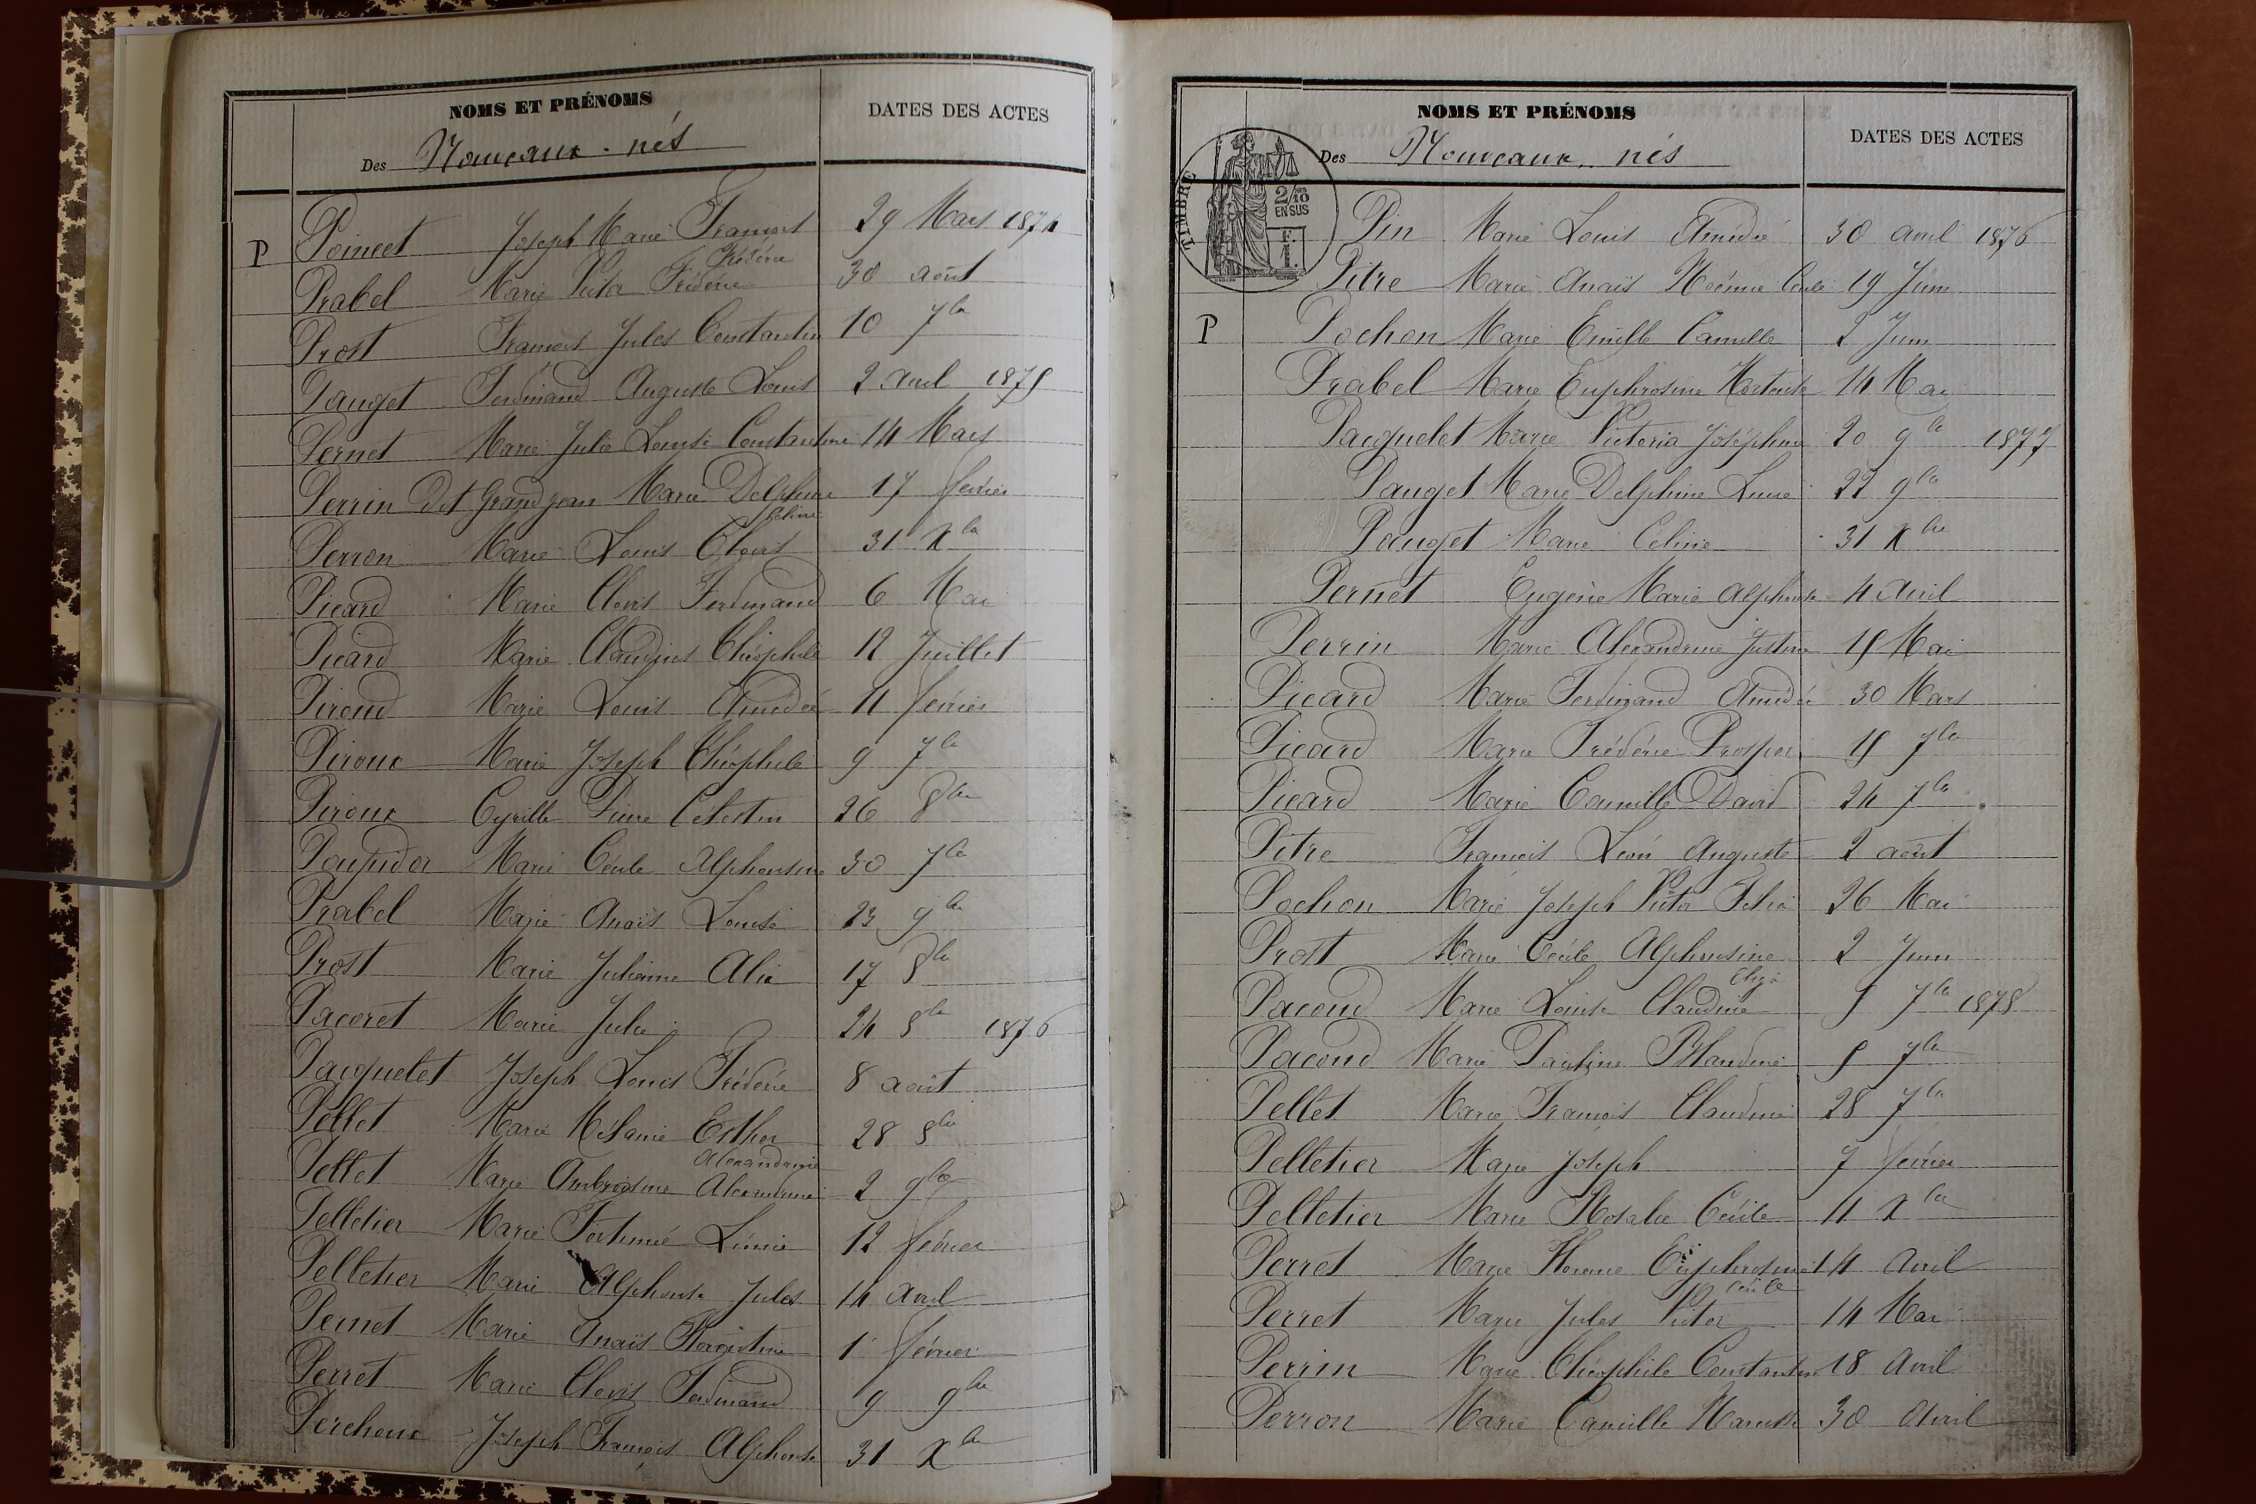 NOMS ET PRÉNOMS
DATES DES ACTES
Des Nouveaux-nés
P
Poincet Joseph Marie François 29 Mars 1874
Frédéric
Prabel Marie Victor Frédéric 30 août
Prost François Jules Constantin 10 7bre
Pauget Ferdinand Auguste Louis 2 avril 1875
Pernet Marie Julie Louise Constantine 14 Mars
Perrin dit Grandjean Marie Delphine 17 février
Céline
Perron Marie Louis Clovis 31 Xbre
Picard Marie Clovis Ferdinand 6 Mai
Picard Marie Claudius Théophile 12 Juillet
Piroud Marie Louis Amédée 11 février
Piroux Marie Joseph Théophile 9 7bre
Piroux Cyrille Pierre Célestin 26 8bre
Poupidor Marie Cécile Alphonsine 30 7bre
Prabel Marie Anaïs Louise 23 9bre
Prost Marie Julienne Alix 17 8bre
Pacoret Marie Julie 24 8bre 1876
Pacquelet Joseph Louis Frédéric 8 août
Pellet Marie Mélanie Esther 28 8bre
Alexandrine
Pellet Marie Ambrosine Alexandrine 2 9bre
Pelletier Marie Fortunée Lucie 12 février
Pelletier Marie Alphonse Jules 14 avril
Pernet Marie Anaïs 1 février
Perret Marie Clovis Ferdinand 9 9bre
Perchoux Joseph François Alphonse 31 Xbre
NOMS ET PRÉNOMS
DATES DES ACTES
Des Nouveaux-nés
TIMBRE
2/10
EN SUS
Pin Marie Louis Amédée 30 avril 1876
Pitre Marie Anaïs Noémie Cécile 19 Juin
P
Pochon Marie Emille Camille 2 Juin
Prabel Marie Euphrosine Hortense 14 Mai
Pacquelet Marie Victoria Joséphine 20 9bre 1877
Pauget Marie Delphine Lucie 22 9bre
Pauget Marie Celinie 31 Xbre
Pernet Eugène Marie Alphonse 4 avril
Perrin Marie Alexandrine Justine 15 Mai
Picard Marie Ferdinand Amédée 30 Mars
Picard Marie Frédéric Prosper 15 7bre
Picard Marie Camille David 24 7bre
Pitre François Léon Auguste 2 août
Pochon Marie Joseph Victor Félix 26 Mai
Prost Marie Cécile Alphonsine 2 Juin
Eliza
Pacoud Marie Louise Claudine 5 7bre 1878
Pacoud Marie Pauline Blandine 5 7bre
Pellet Marie François Claudine 28 7bre
Pelletier Marie Joseph 7 février
Pelletier Marie Rosalie Cécile 11 Xbre
Perret Marie Florence Euphrosine 14 avril
Cécile
Perret Marie Jules Victor 14 Mai
Perrin Marie Théophile Constantin 18 avril
Perron Marie Camille 30 avril